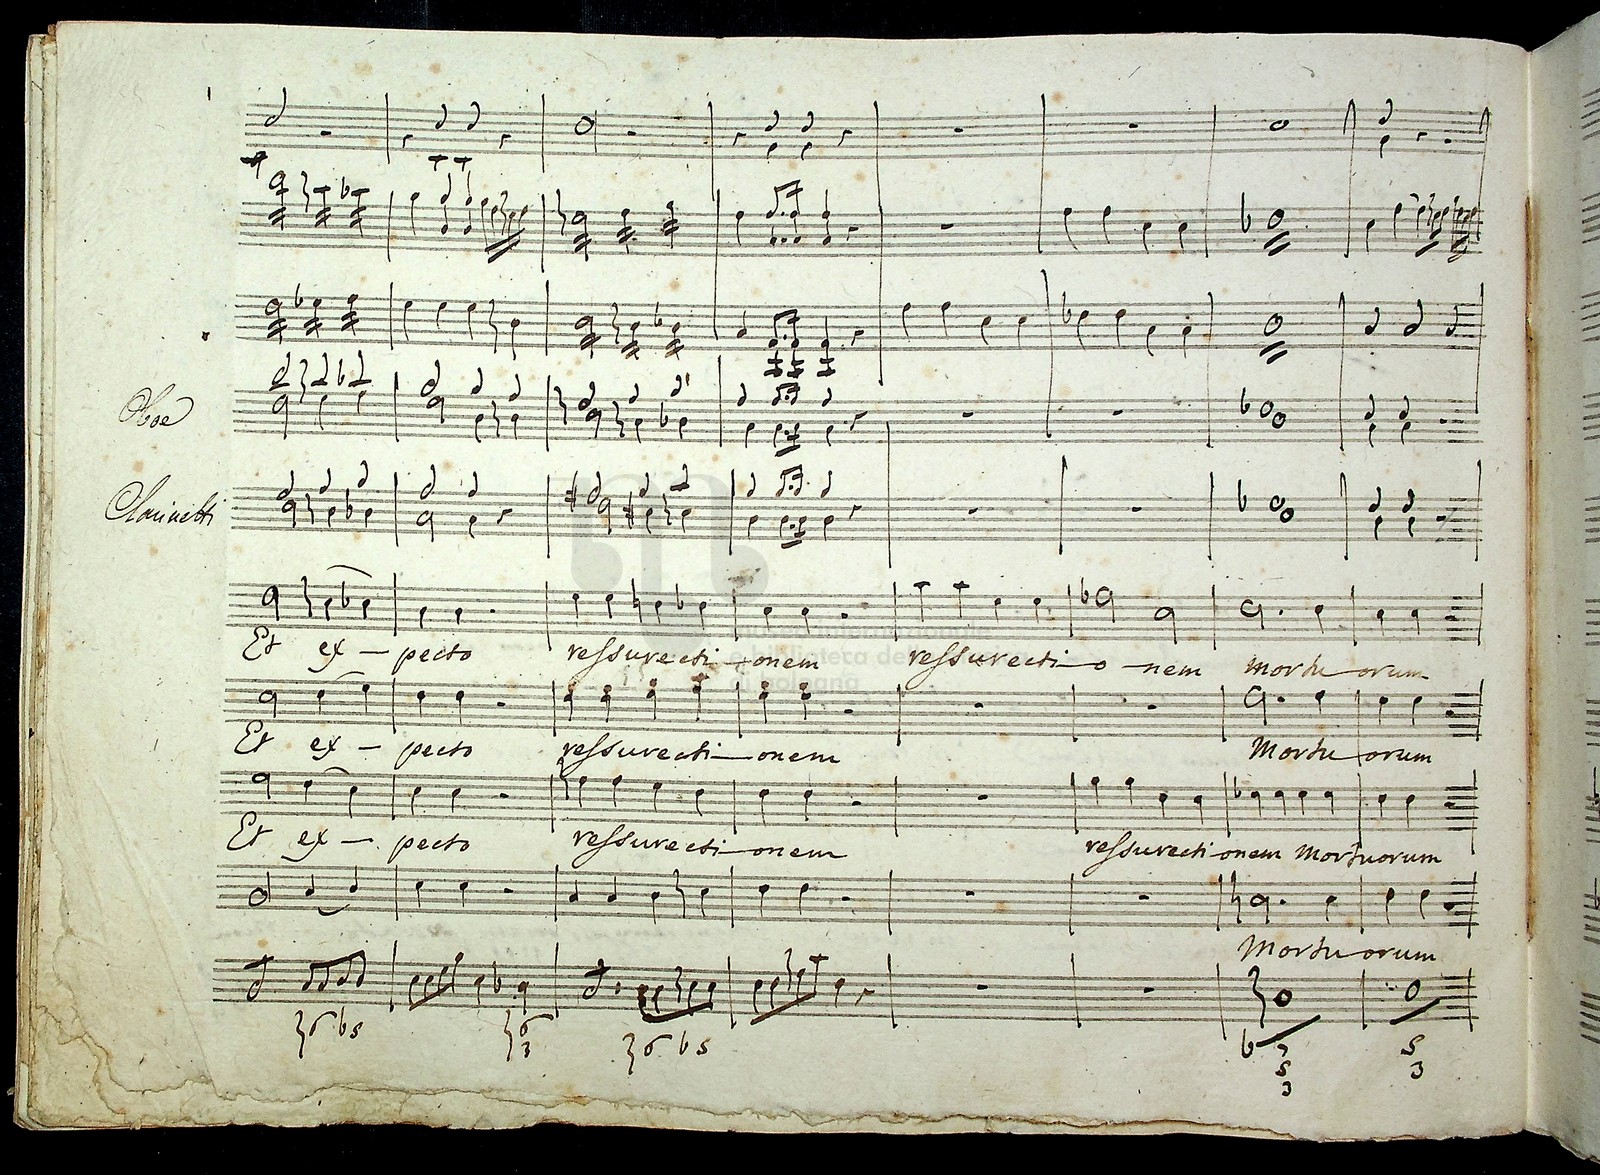 Oboe
Clarinetti
Et ex - pecto ressurecti - onem ressurecti - o - nem mortu - orum
Et ex - pecto ressurecti - onem Mortu - orum
Et ex - pecto ressurecti - onem ressurecti onem Mortuorum
Mortu - orum
6 b5 6 3 6 b5 b 7 5 3 5 3
museo internazionale
e biblioteca della musica
di bologna